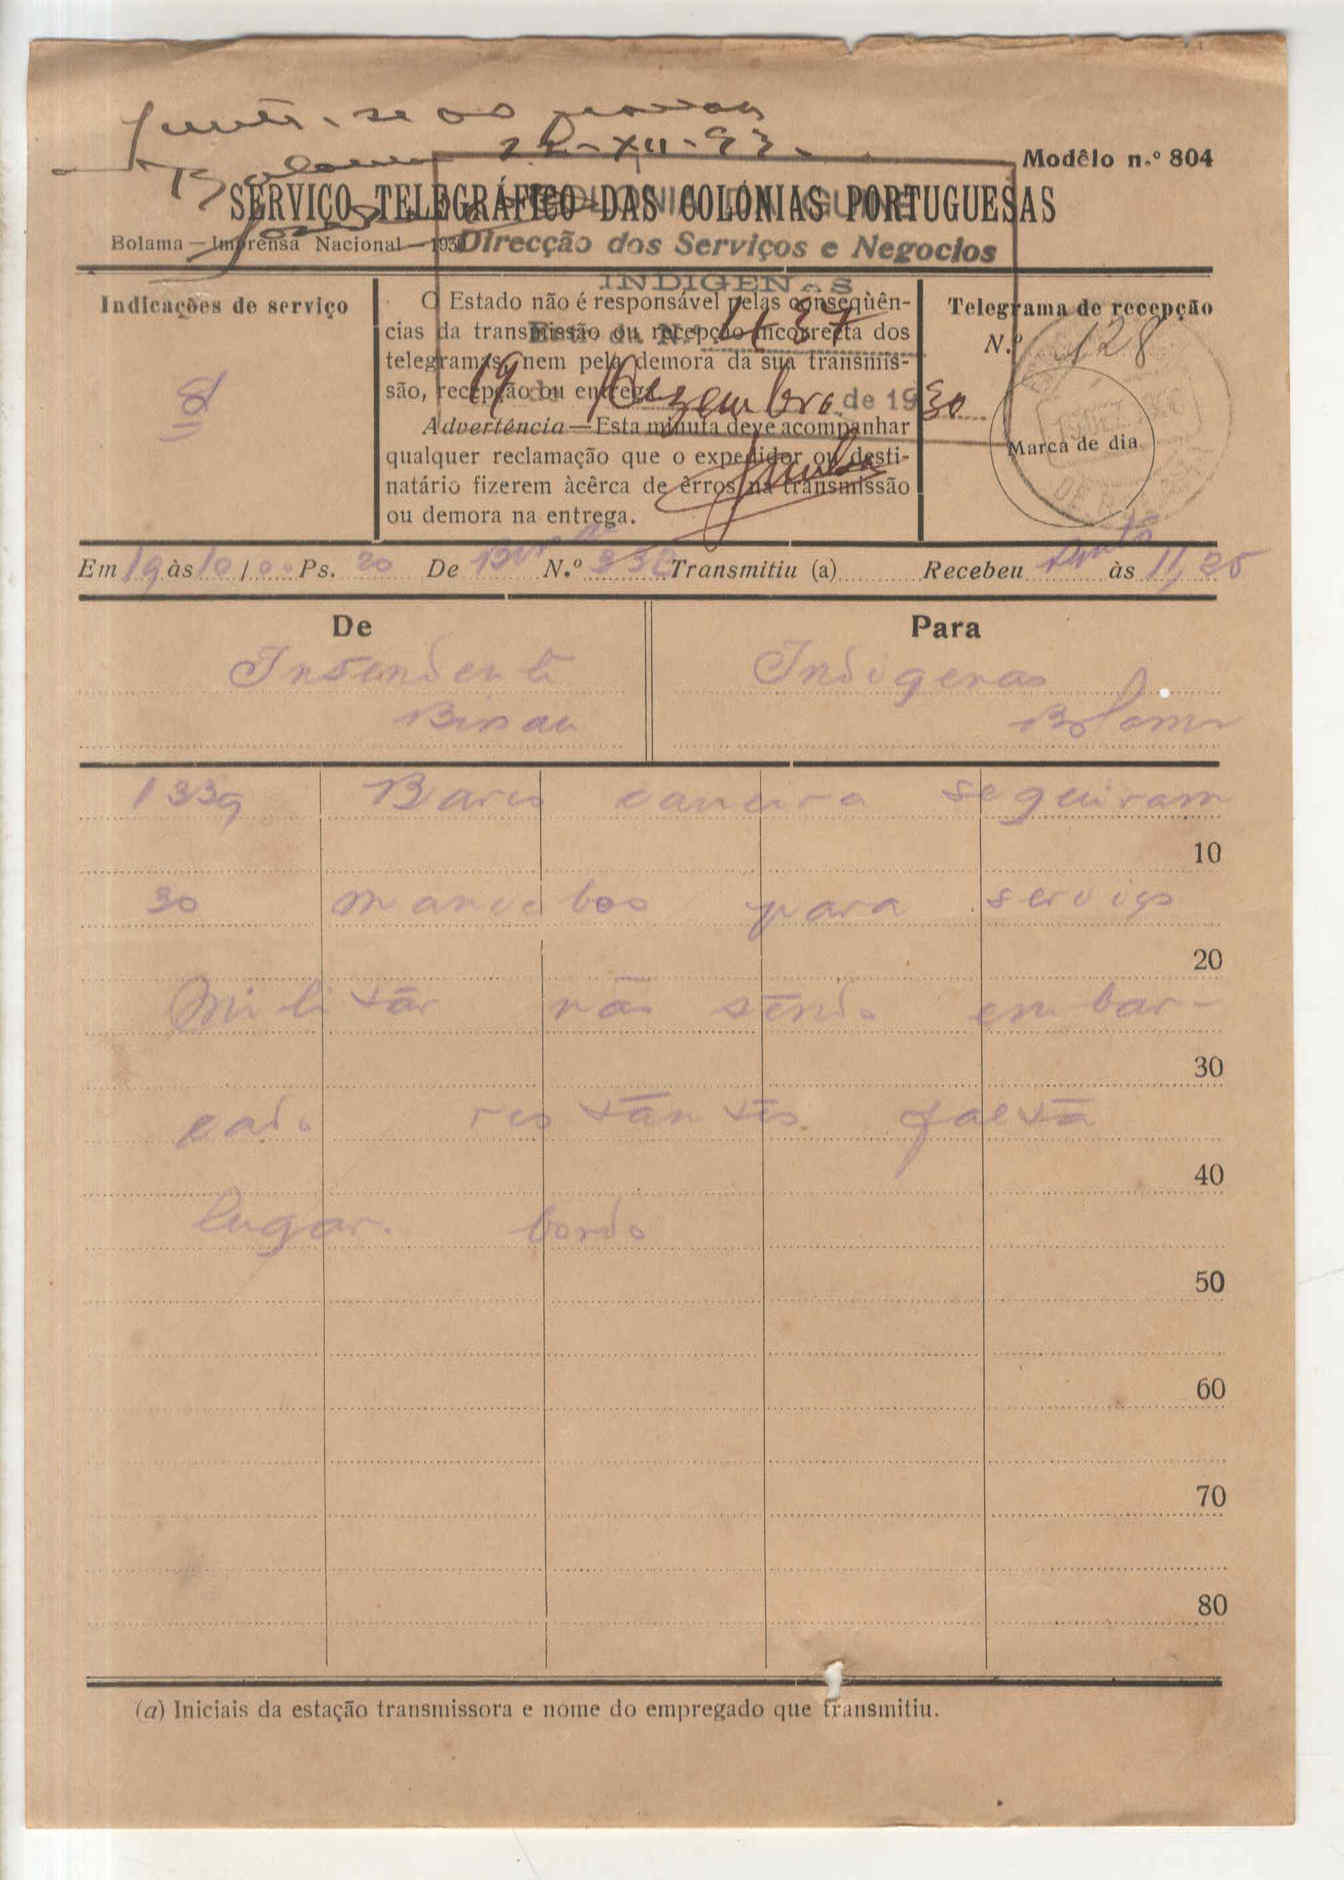 Junte-se ao processo
Bolama 22-XII-93
Modêlo n.º 804
COLONIA DA GUINÉ
SERVIÇO TELEGRÁFICO DAS COLÓNIAS PORTUGUESAS
Bolama — Imprensa Nacional — 1930
Direcção dos Serviços e Negocios
INDIGENAS
Indicações de serviço
O Estado não é responsável pelas conseqüên-
cias da transmissão ou recepção incorrecta dos
telegramas, nem pela demora da sua transmis-
são, recepção ou entrega.
Advertência — Esta minuta deve acompanhar
qualquer reclamação que o expedidor ou desti-
natário fizerem àcêrca de êrros na transmissão
ou demora na entrega.
N.º 437
19 de Dezembro de 1930
Telegrama de recepção
N.º 128
Marca de dia
Em 19 às 10/00 Ps. 20 De Bissau N.º 332 Transmitiu (a) Recebeu às 11,25
De
Intendente
Bissau
Para
Indigenas
Bolama
1339 Barco carreira seguiram
10
30 mancebos para serviço
20
militar não sendo embar-
30
cado restantes falta
40
lugar bordo
50
60
70
80
(a) Iniciais da estação transmissora e nome do empregado que transmitiu.